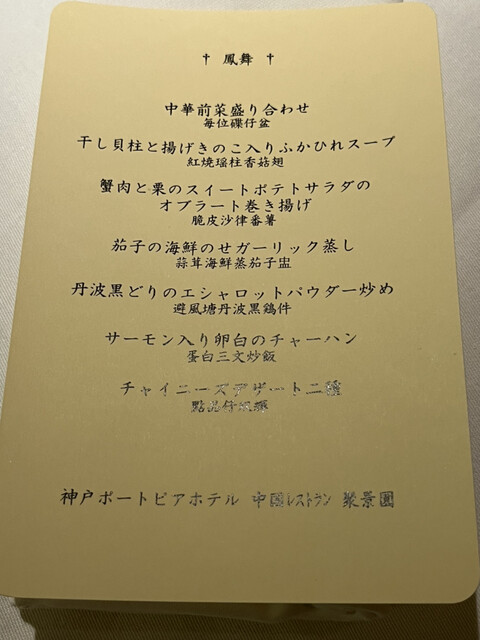 † 鳳舞 †
中華前菜盛り合わせ
毎位碟仔盆
干し貝柱と揚げきのこ入りふかひれスープ
紅焼瑶柱香菇翅
蟹肉と栗のスイートポテトサラダの
オブラート巻き揚げ
脆皮沙律番薯
茄子の海鮮のせガーリック蒸し
蒜茸海鮮蒸茄子盅
丹波黒どりのエシャロットパウダー炒め
避風塘丹波黒鶏件
サーモン入り卵白のチャーハン
蛋白三文炒飯
チャイニーズデザート二種
神戸ポートピアホテル 中国レストラン 聚景園